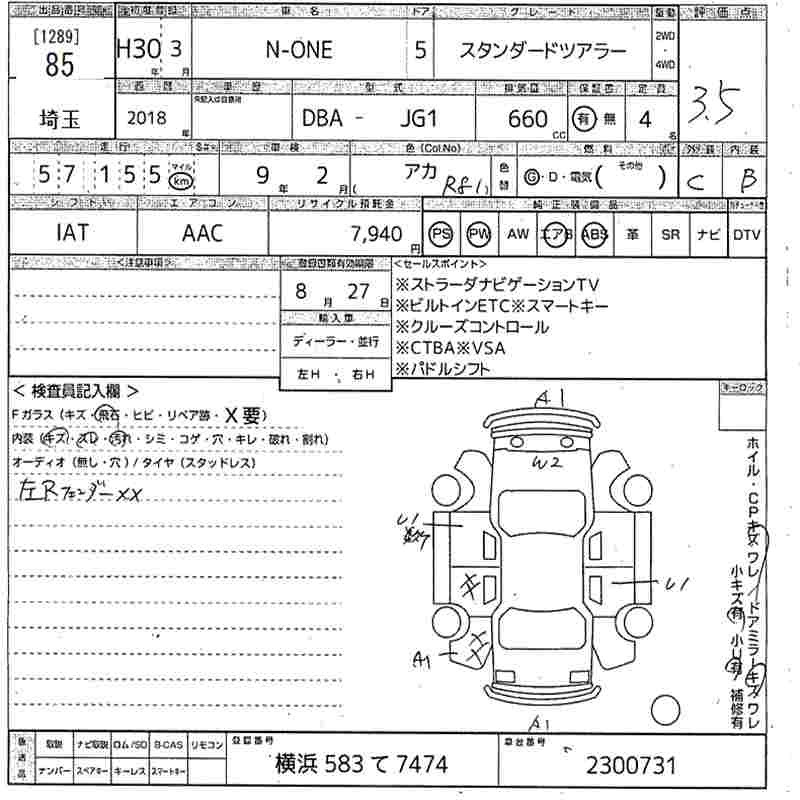 出品番号 初度登録 車名 ドア グレード 駆動 評価点
[1289]
85 H30 年 3 月 N-ONE 5 スタンダードツアラー 2WD・4WD 3.5
車歴 型式 排気量 保証書 定員
埼玉 2018 年 DBA - JG1 660 CC 有 無 4 名
走行 車検 色 (Col.No) 燃料 外装 内装
5 7 1 5 5 マイル km 9 年 2 月 アカ ( R81 ) 色替 G・D・電気( その他 ) C B
シフト エアコン リサイクル預託金 純正装備品
IAT AAC 7,940 円 PS PW AW エアB ABS 革 SR ナビ DTV
<注意事項> 登録書類有効期限 <セールスポイント>
8 月 27 日
※ストラーダナビゲーションTV
※ビルトインETC※スマートキー
輸入車
※クルーズコントロール
ディーラー・並行
※CTBA※VSA
左H ・ 右H
※パドルシフト
< 検査員記入欄 >
キーロック
Fガラス (キズ・飛石・ヒビ・リペア跡・X要)
内装 (キズ・スレ・汚れ・シミ・コゲ・穴・キレ・破れ・割れ)
オーディオ (無し・穴) / タイヤ (スタッドレス)
左Rフェンダー XX
A1
W2
U1
数ケ
U1
A1
A1
ホイル・CPキズワレ/ドアミラーキズワレ
小キズ有 小U有 補修有
返送品 取説 ナビ取説 ロム/SD B-CAS リモコン 登録番号 車台番号
ナンバー スペアキー キーレス スマートキー 横浜 583 て 7474 2300731